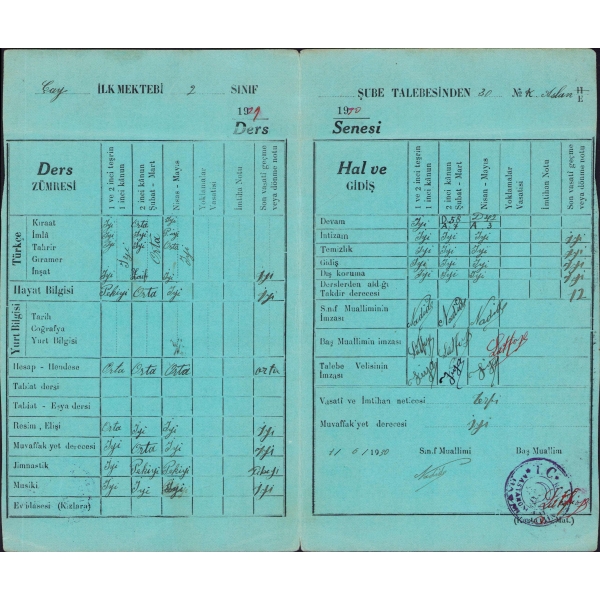 Çay İLKMEKTEBİ 2 SINIF
1929
Ders
Ders
ZÜMRESİ
1 ve 2 inci teşrin
1 inci kânun
2 inci kânun
Şubat - Mart
Nisan - Mayıs
Yoklamalar
Vasatisi
İmtihan Notu
Son vasatî geçme
veya dönme notu
Türkçe
Kıraat İyi Orta İyi
İmlâ İyi İyi
Tahrir İyi İyi Orta
Gıramer İyi Orta İyi
İnşat İyi İyi
Hayat Bilgisi Pekiyi Orta İyi İyi
Yurt Bilgisi
Tarih
Coğrafya
Yurt Bilgisi
Hesap - Hendese Orta Orta Orta orta
Tabiat dersi
Tabiat - Eşya dersi
Resim, Elişi Orta İyi İyi İyi
Muvaffakıyet derecesi İyi Orta İyi İyi
Jimnastik İyi Pekiyi Pekiyi Pekiyi
Musiki İyi İyi İyi İyi
Ev idâsesi (Kızlara)
ŞUBE TALEBESİNDEN 30 No. K. Aslan H/E
1930
Senesi
Hal ve
GİDİŞ
1 ve 2 inci teşrin
1 inci kânun
2 inci kânun
Şubat - Mart
Nisan - Mayıs
Yoklamalar
Vasatisi
İmtihan Notu
Son vasatî geçme
veya dönme notu
Devam İyi D. 58 D
A. A. 3
İntizam İyi İyi İyi İyi
Temizlik İyi İyi İyi İyi
Gidiş İyi İyi İyi İyi
Dış koruma İyi İyi İyi İyi
Derslerden aldığı
Takdir derecesi 12
Sınıf Muallimin
İmzası
Baş Muallim
İmzası
Talebe Velisinin
İmzası
Vasatî ve İmtihan neticesi
Muvaffakıyet derecesi İyi
11 6 1930 Sınıf Muallimi Baş Muallim
T. C.